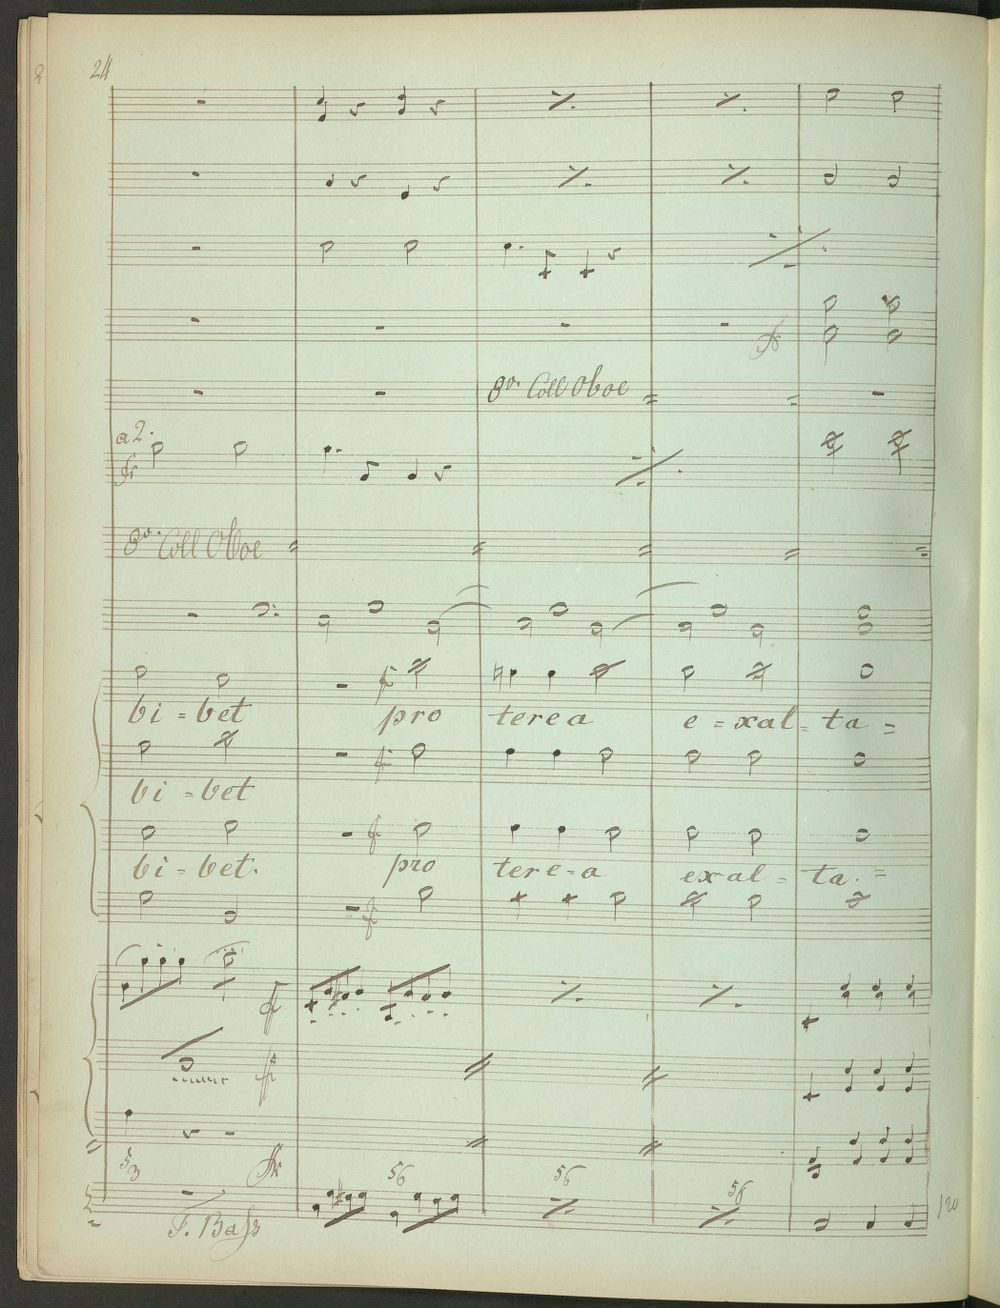 24
8va. Coll Oboe
a 2.
8va. Coll Oboe
bi = bet pro terea e = xal = ta =
bi = bet
bi = bet. pro tere = a exal = ta. =
5 3
56 56 56
T. Bass
120